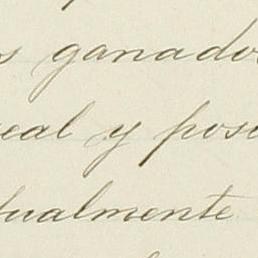 s ganado
real y pos
tualmente